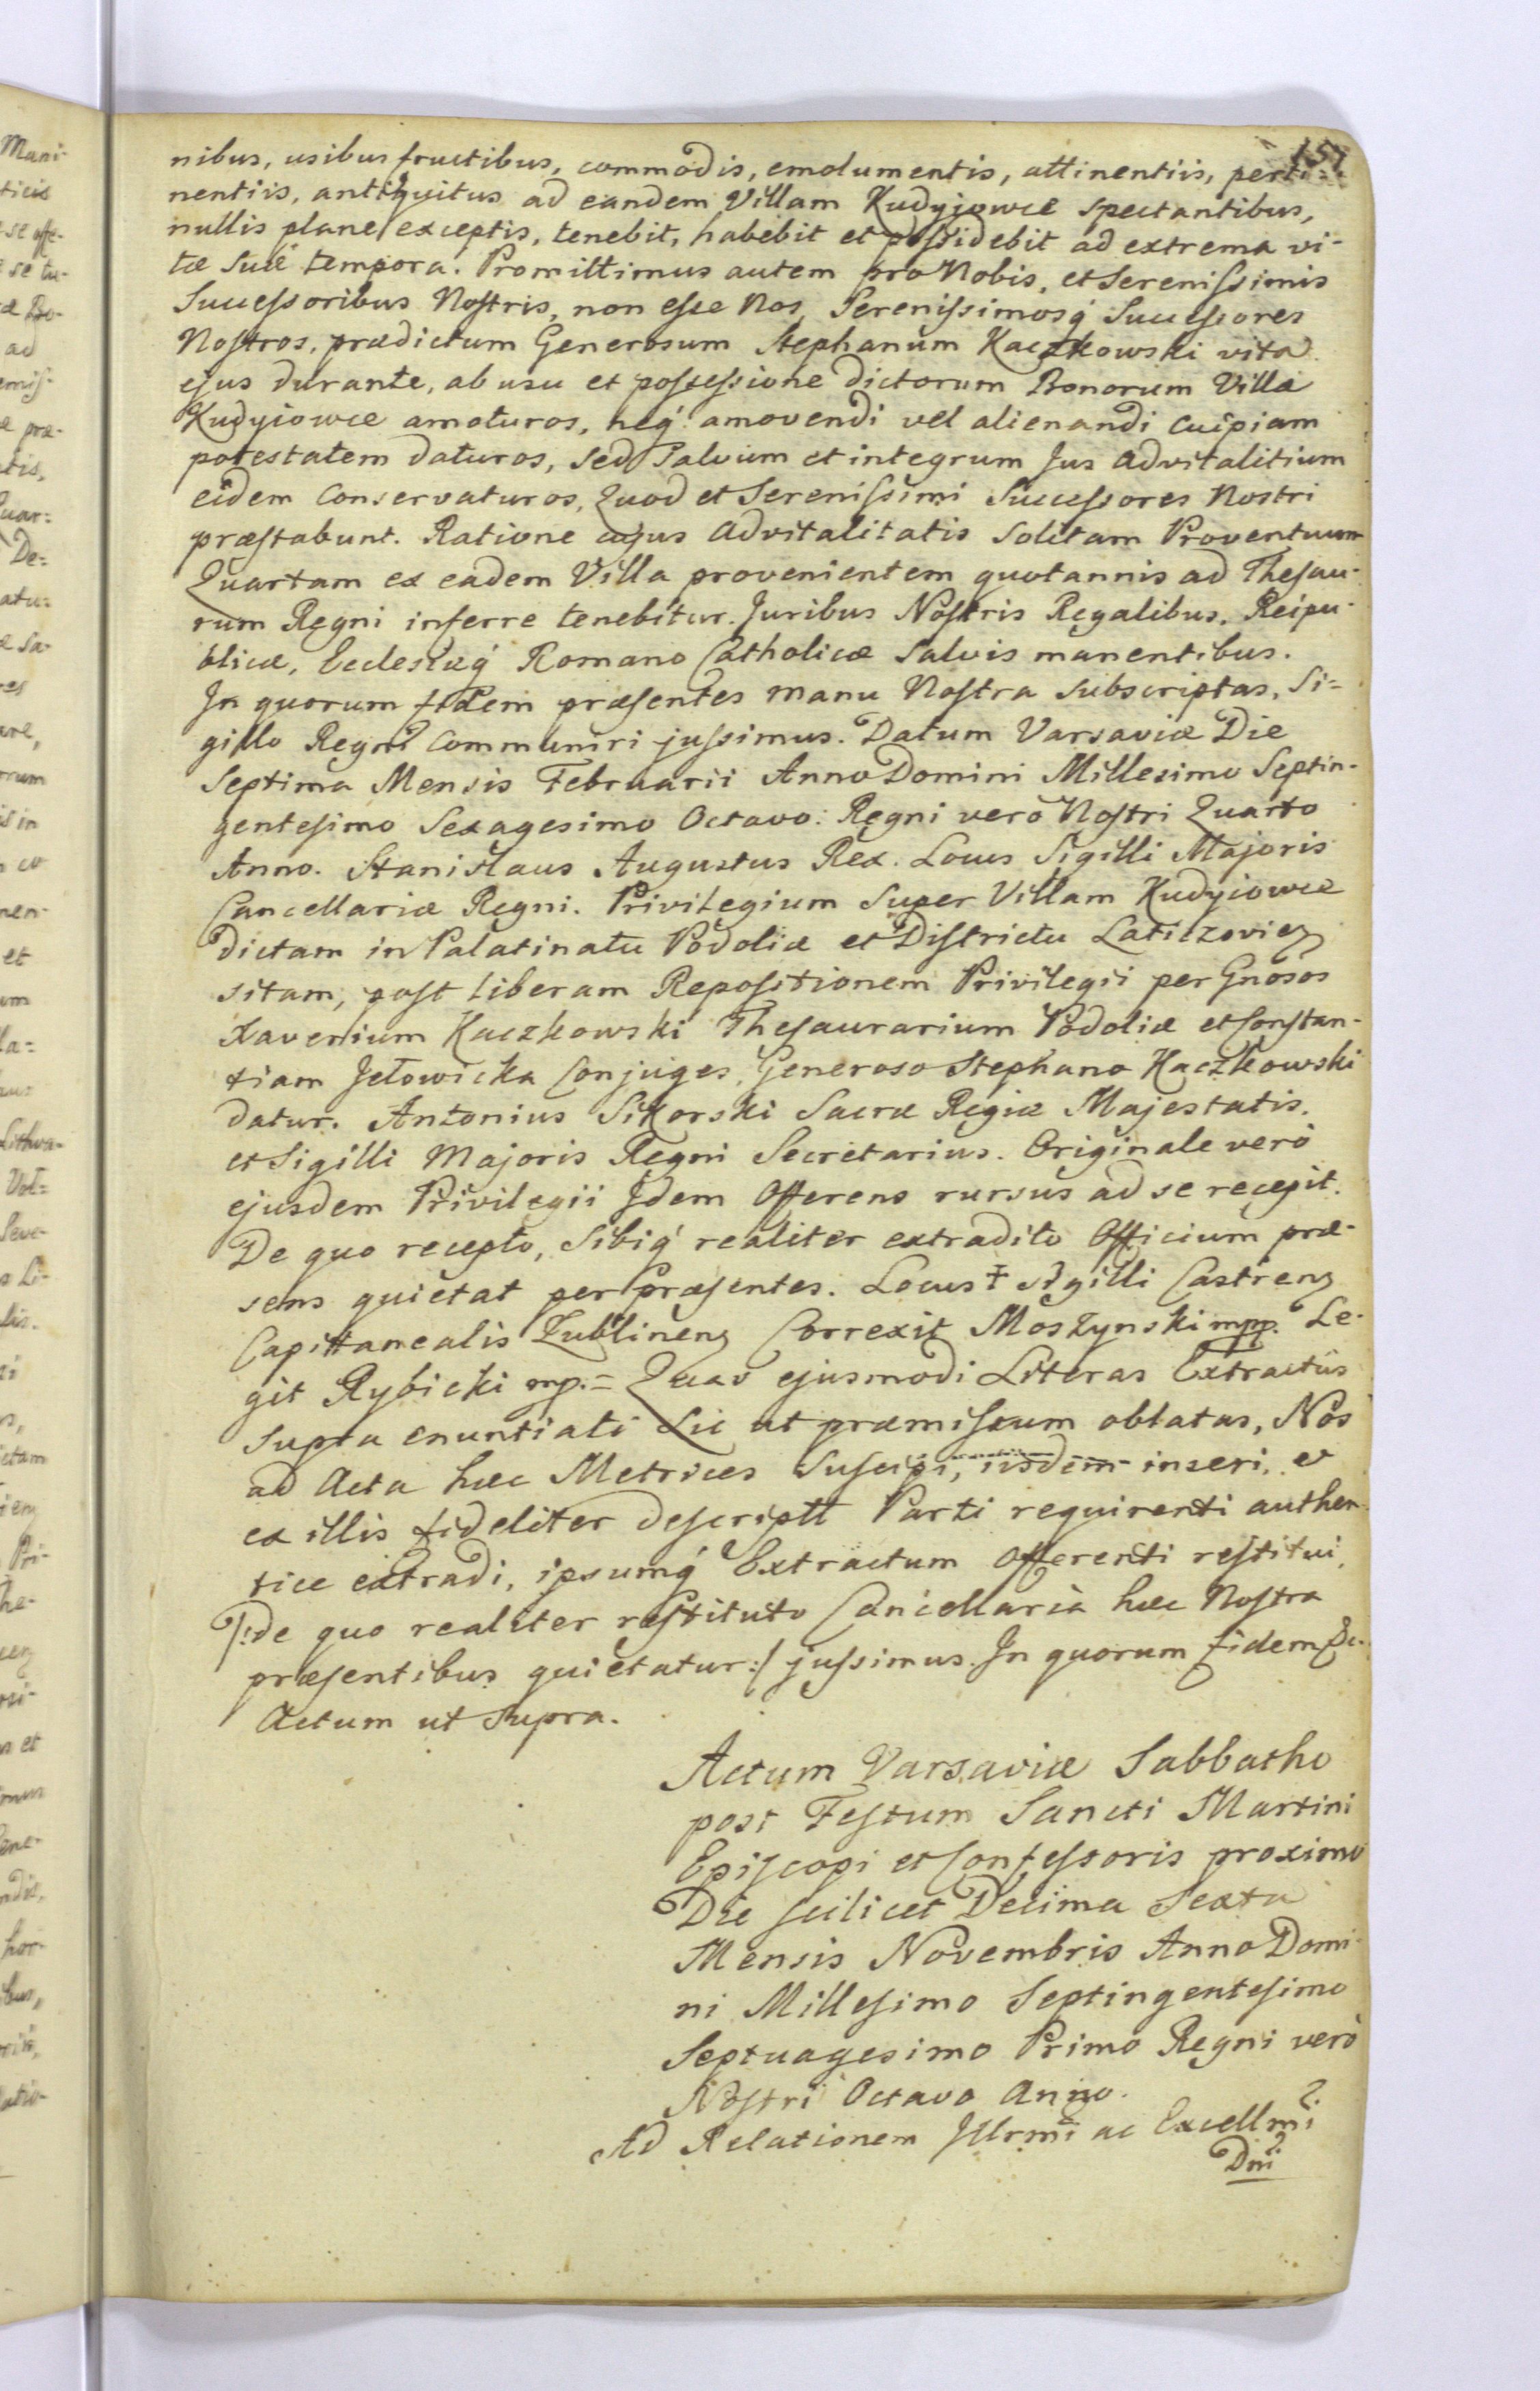 151
nibus, usibus fructibus, commodis, emolumentis, attinentiis, perti=
nentiis, antiquitus ad eandem Villam Kudyjowce spectantibus,
nullis plane exceptis, tenebit, habebit et possidebit ad extrema vi-
tæ suæ tempora. Promittimus autem pro Nobis, et Serenissimis
Successoribus Nostris, non esse Nos, Serenissimosq́ Successores
Nostros, prædictum Generosum Stephanum Kaczkowski vita
ejus durante, ab usu et possessione dictorum Bonorum Villæ
Kudyiowce amoturos, neq́ amovendi vel alienandi cuipiam
potestatem daturos, sed Salvum et integrum Jus Advitalitium
eidem Conservaturos, Quod et Serenissimi Successores Nostri
præstabunt. Ratione cujus Advitalitatis Solitam Proventuum
Quartam ex eadem Villa provenientem quotannis ad Thesau-
rum Regni inferre tenebitur. Juribus Nostris Regalibus, Reipu-
blicæ, Ecclesiæq́ Romano Catholicæ Salvis manentibus.
In quorum fidem præsentes manu Nostra subscriptas, Si=
gillo Regni Communiri jussimus. Datum Varsaviæ Die
Septima Mensis Februarii Anno Domini Millesimo Septin-
gentesimo Sexagesimo Octavo. Regni vero Nostri Quarto
Anno. Stanislaus Augustus Rex. Locus Sigilli Majoris
Cancellariæ Regni. Privilegium Super Villam Kudyiowce
dictam in Palatinatu Podoliæ et Districtu Laticzovien
sitam, post liberam Repositionem Privilegii per Gnosos
Xaverium Kaczkowski Thesaurarium Podoliæ et Constan-
tiam Jełowicka Conjuges, Generoso Stephano Kaczkowski
datur. Antonius Sikorski Sacræ Regiæ Majestatis,
et Sigilli Majoris Regni Secretarius. Originale verò
ejusdem Privilegii Idem Offerens rursus ad se recepit.
De quo recepto, sibiq́ realiter extradito Officium præ-
sens quietat per Præsentes. Locus ‡ Sigilli Castren
Capittanealis Lublinen Correxit Moszynski mpp. Le-
git Rybicki mp. = Quas ejusmodi Literas Extractûs
supra enuntiati sic ut præmissum oblatas, Nos
ad Acta hæc Metrices Suscipi, iisdem inseri, et
ex illis fideliter descriptt Parti requirenti authen-
tice extradi, ipsumq́ Extractum Offerenti restitui,
/:de quo realiter restituto Cancellaria hæc Nostra
præsentibus quietatur:/ jussimus. In quorum fidem &c.
Actum ut supra.
Actum Varsaviæ Sabbatho
post Festum Sancti Martini
Episcopi et Confessoris proximo
Die scilicet Decima Sexta
Mensis Novembris Anno Domi-
ni Millesimo Septingentesimo
Septuagesimo Primo Regni verò
Nostri Octavo Anno.
Ad Relationem Illrmi ac Excellmi
Dni